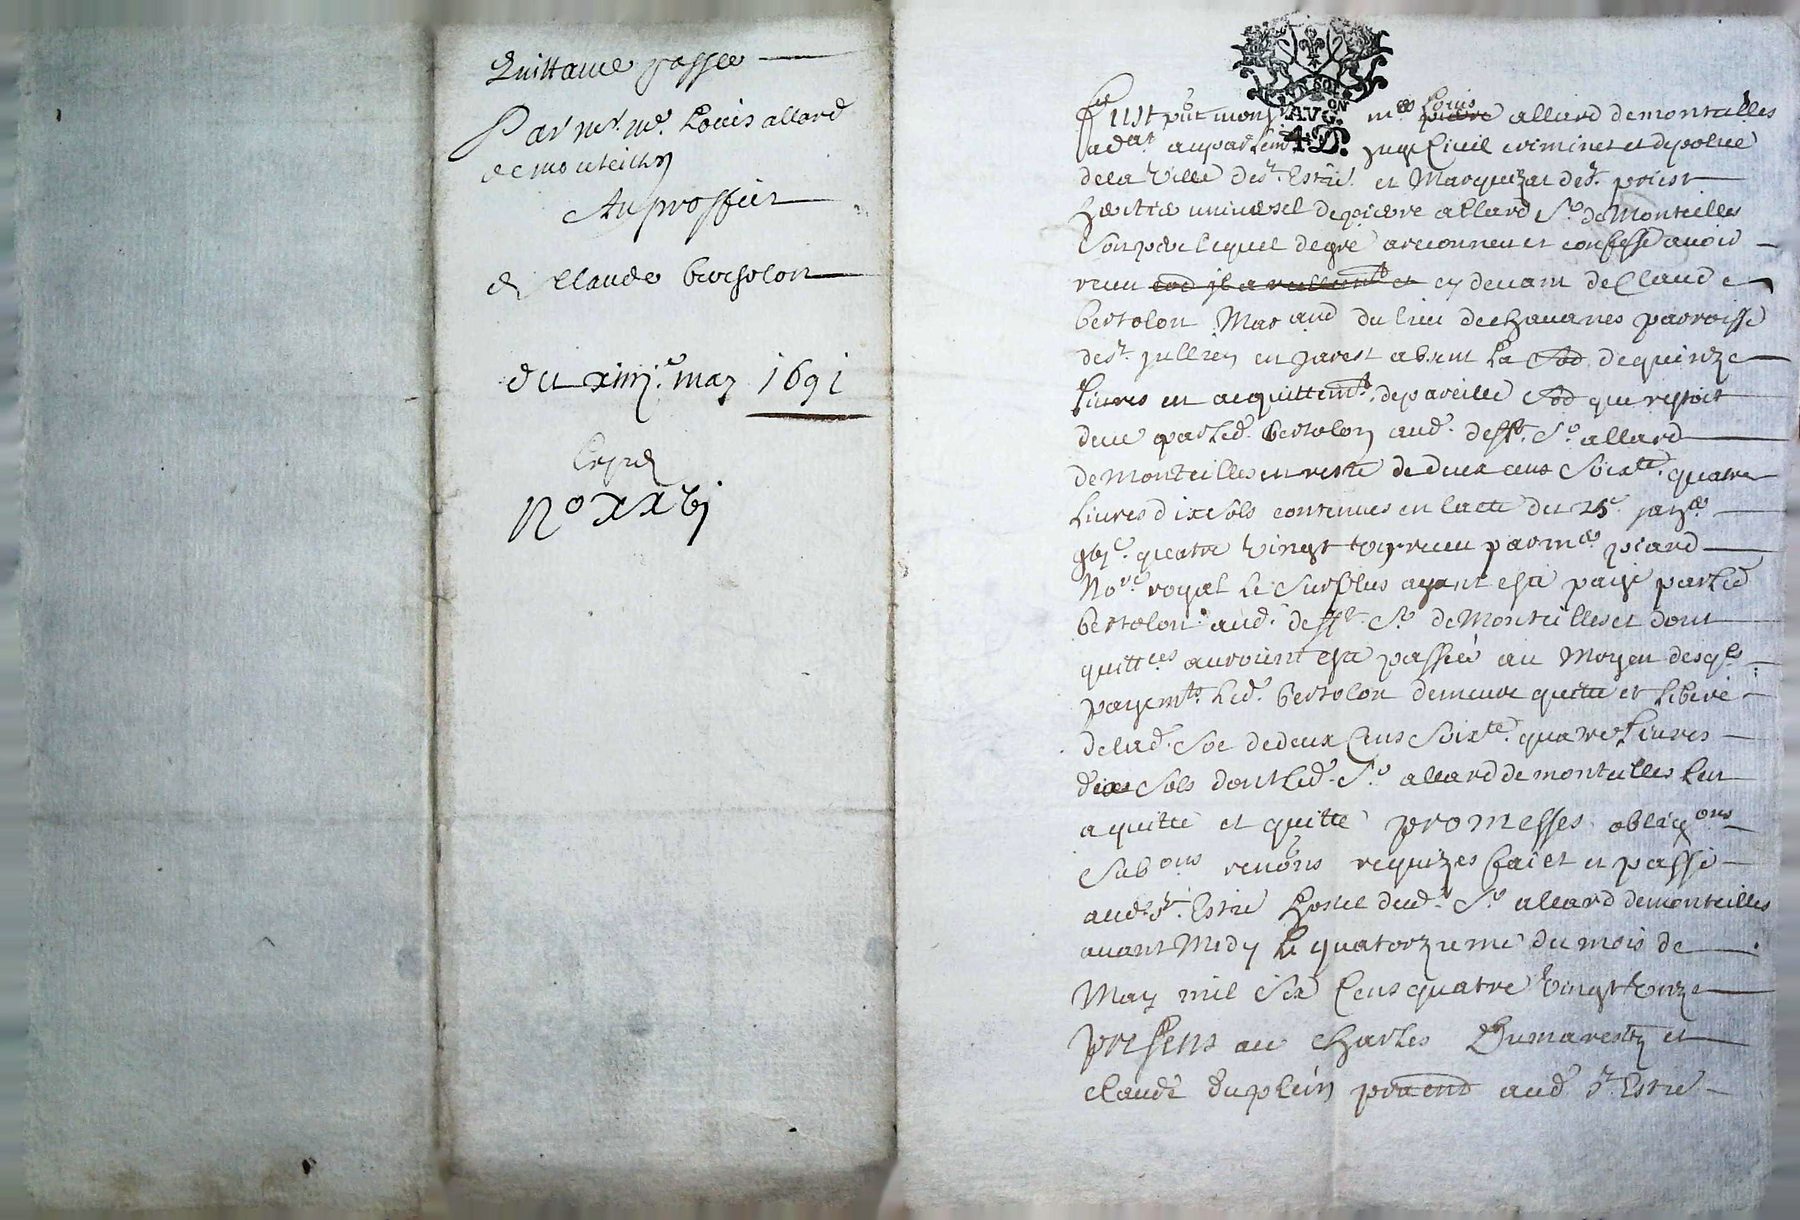 Quittance passée
Par mr. me. Louis allard
de monteilles
Au proffict
de Claude bertholon
du xiiij.e may 1691
Expd
No xxbj
Fust pnt mons. me Louis pierre allard de monteilles
adat. au parlemt. juge Civil criminel et de police
de la Ville de st. Estie. et Marquizat de st. priest
Heritie universel de pierre allard Sr. de Monteilles
Son pere lequel de gré a reconneu et confessé avoir
receu cy devant de Claude
bertolon Marand du lieu de chavanes parroisse
de st. jullien en jarest absent La Soe de quinze
Livres en acquittemt. de pareille Soe que restoit
deue par Led. bertolon aud. defft. Sr. allard
de Monteilles en reste de deux cens Soixte. quatre
Livres dix Sols contenues en lacte du 25e janer
quatre vingt receu par me piard
Nore royal Le Surplus ayant esté payé par Led
bertolon aud. defft. Sr. de Monteilles et dont
quittces auroient esté passées au Moyen desqls
payemts. Led. bertolon demeure quitte et Libéré
de lad. Soe de deux Cens Soixte. quatre Livres
dix Sols dont Led. Sr. allard de monteilles Len
a quitté et quitte promesses obligons
Subons renons requizes faict et passé
aud. st. Estie hostel dud. Sr. allard de monteilles
avant Midy Le quatorzieme du mois de
May mil Six Cens quatre Vingt Unze
presens au Charles Dumarest et
Claude Duplein aud. st. Estie